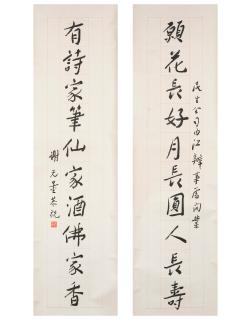 願花長好月長圓人長壽
民生公司內江辦事處開業
有詩家筆仙家酒佛家香
謝元量恭祝